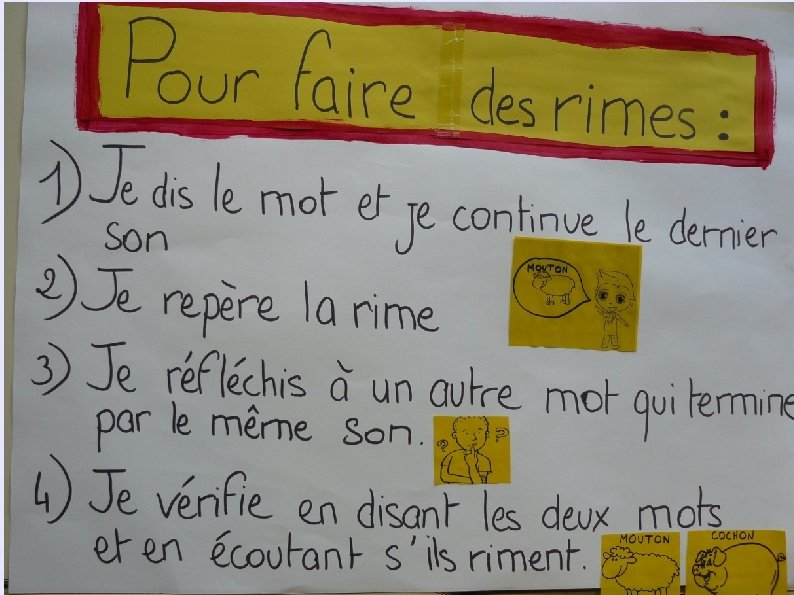 Pour faire des rimes :
1) Je dis le mot et je continue le dernier
son
MOUTON
2) Je repère la rime
3) Je réfléchis à un autre mot qui termine
par le même son.
? ?
4) Je vérifie en disant les deux mots
et en écoutant s'ils riment.
MOUTON
COCHON